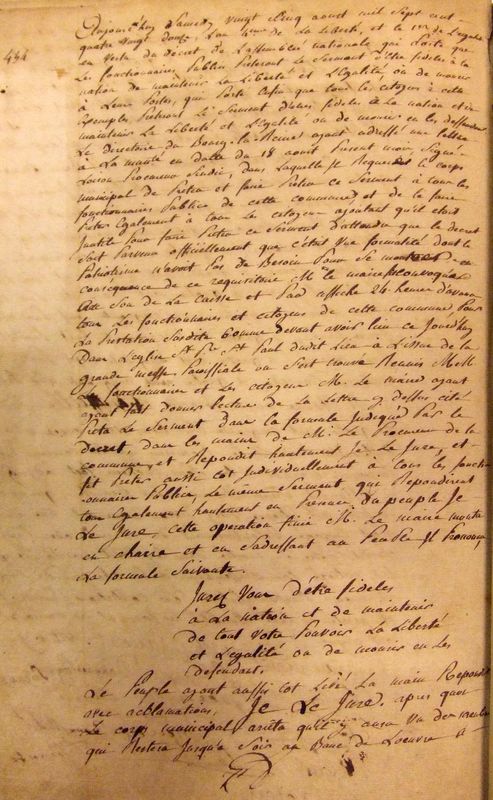 Aujourd'huy Samedy vingt cinq aoust mil sept cent
quatre vingt douze L'an 4eme de La Liberté, et le 1er de L'egalité
444
en vertu du decret de L'assemblée nationale qui Porte que
Les fonctionnaires Publics Preteront Le Serment d'être fideles à la
nation de maintenir La Liberté et L'Egalité, ou de mourir
à Leurs Postes, que Porte Enfin que tous les citoyens à cette
Exemple Preteront Le Serment d'être fideles à La nation et de
maintenir La Liberté et L'egalité ou de mourir en les deffendant
Le directoire du Bourg La Reine ayant adressé une Lettre
à La mairie en datte du 18 aoust Present mois, Signé
Procureur Sindic, dans Laquelle il Requerre Le corps
municipal de Pretter et faire Pretter ce Serment à tous les
fonctionnaires Publics de cette commune et de le faire
Preter Egalement à tous les citoyens ajoutant qu'il etoit
Inutile Pour faire Pretter ce Serment d'attendre que le decret
Soit Parvenu officiellement que c'etoit Une formalité dont le
Patriotisme n'avoit Pas de Besoin Pour Se montrer en
consequence de ce requisitoire Mr le maire a convoqué
au Son de La Caisse et Par affiche 24 heures d'avance
tous Les fonctionnaires et citoyens de cette commune Pour
La Prestation Susdite Comme devant avoir lieu ce Jourd'huy
Dans L'eglise St Pre St Paul dudit Lieu à L'issue de la
grande messe Paroissiale ou S'est trouvé Reunis MM
Les fonctionnaires et Les citoyens M. Le maire ayant
ayant fait donner Lecture de La Lettre cy dessus cité
Preta Le Serment dans la formule Indiqué Par le
decret, dans les mains de Mr Le Procureur de la
commune, et Repondit hautement Je Le Jure, et
fit Preter aussi tot Individuellement à tous les fonction
-onnaires Publics, Le même Serment qui Repondirent
tous Egalement hautement en Presence du peuple Je
Le Jure, cette operation finie M. Le maire monta
en chaire et en S'adressant au Peuple Il Prononca
La formule Suivante.
Jurez Vous d'être fideles
à La nation et de maintenir
de tout Votre Pouvoir La Liberté
et L'egalité ou de mourir en Les
defendant.
Le Peuple ayant aussi tot Levé La main Repondit
avec acclamations, Je Le Jure. apres quoi
Le corps municipal arreta qu'il y aura un des membres
qui Restera Jusqu'a Soir au Banc de L'oeuvre à